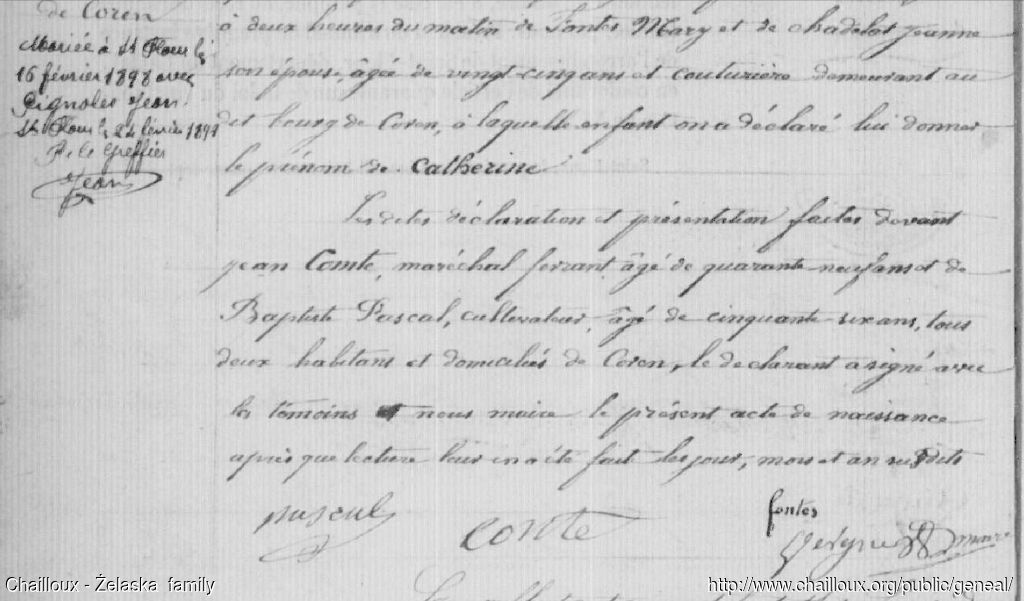 de Coren
Mariée à St Flour le
16 février 1898 avec
Pignoles Jean
St Flour le 24 février 1898
P. le Greffier
Jean
à deux heures du matin de Fontes Mary et de chadelat Jeanne
son épouse, âgée de vingt-cinq ans et couturière demeurant au
dit bourg de Coren, à laquelle enfant on a déclaré lui donner
le prénom de Catherine
Les dites déclaration et présentation faites devant
jean Comte, maréchal ferrant, âgé de quarante-neuf ans et de
Baptiste Pascal, cultivateur, âgé de cinquante-six ans, tous
deux habitans et domiciliés de Coren, le déclarant a signé avec
les témoins et nous maire le présent acte de naissance
après que lecture leur en a été faite les jour, mois et an susdits
pascal
comte
fontes
maire
Chailloux - Żelaska family
http://www.chailloux.org/public/geneal/